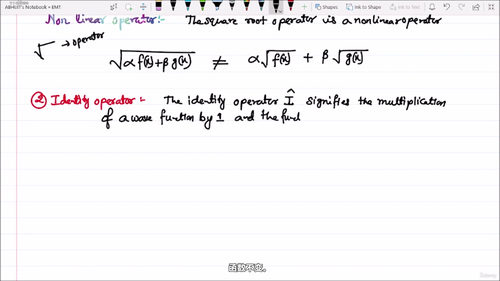 ABHIJIT's Notebook » EMT
Shapes
Ink to Shape
Ink to Text
Non linear operator:- The square root operator is a nonlinear operator
√ → operator
√(α f(x) + β g(x)) ≠ α √f(x) + β √g(x)
② Identity operator :- The identity operator Î signifies the multiplication
of a wave function by 1 and the fund
函数不变。
Udemy